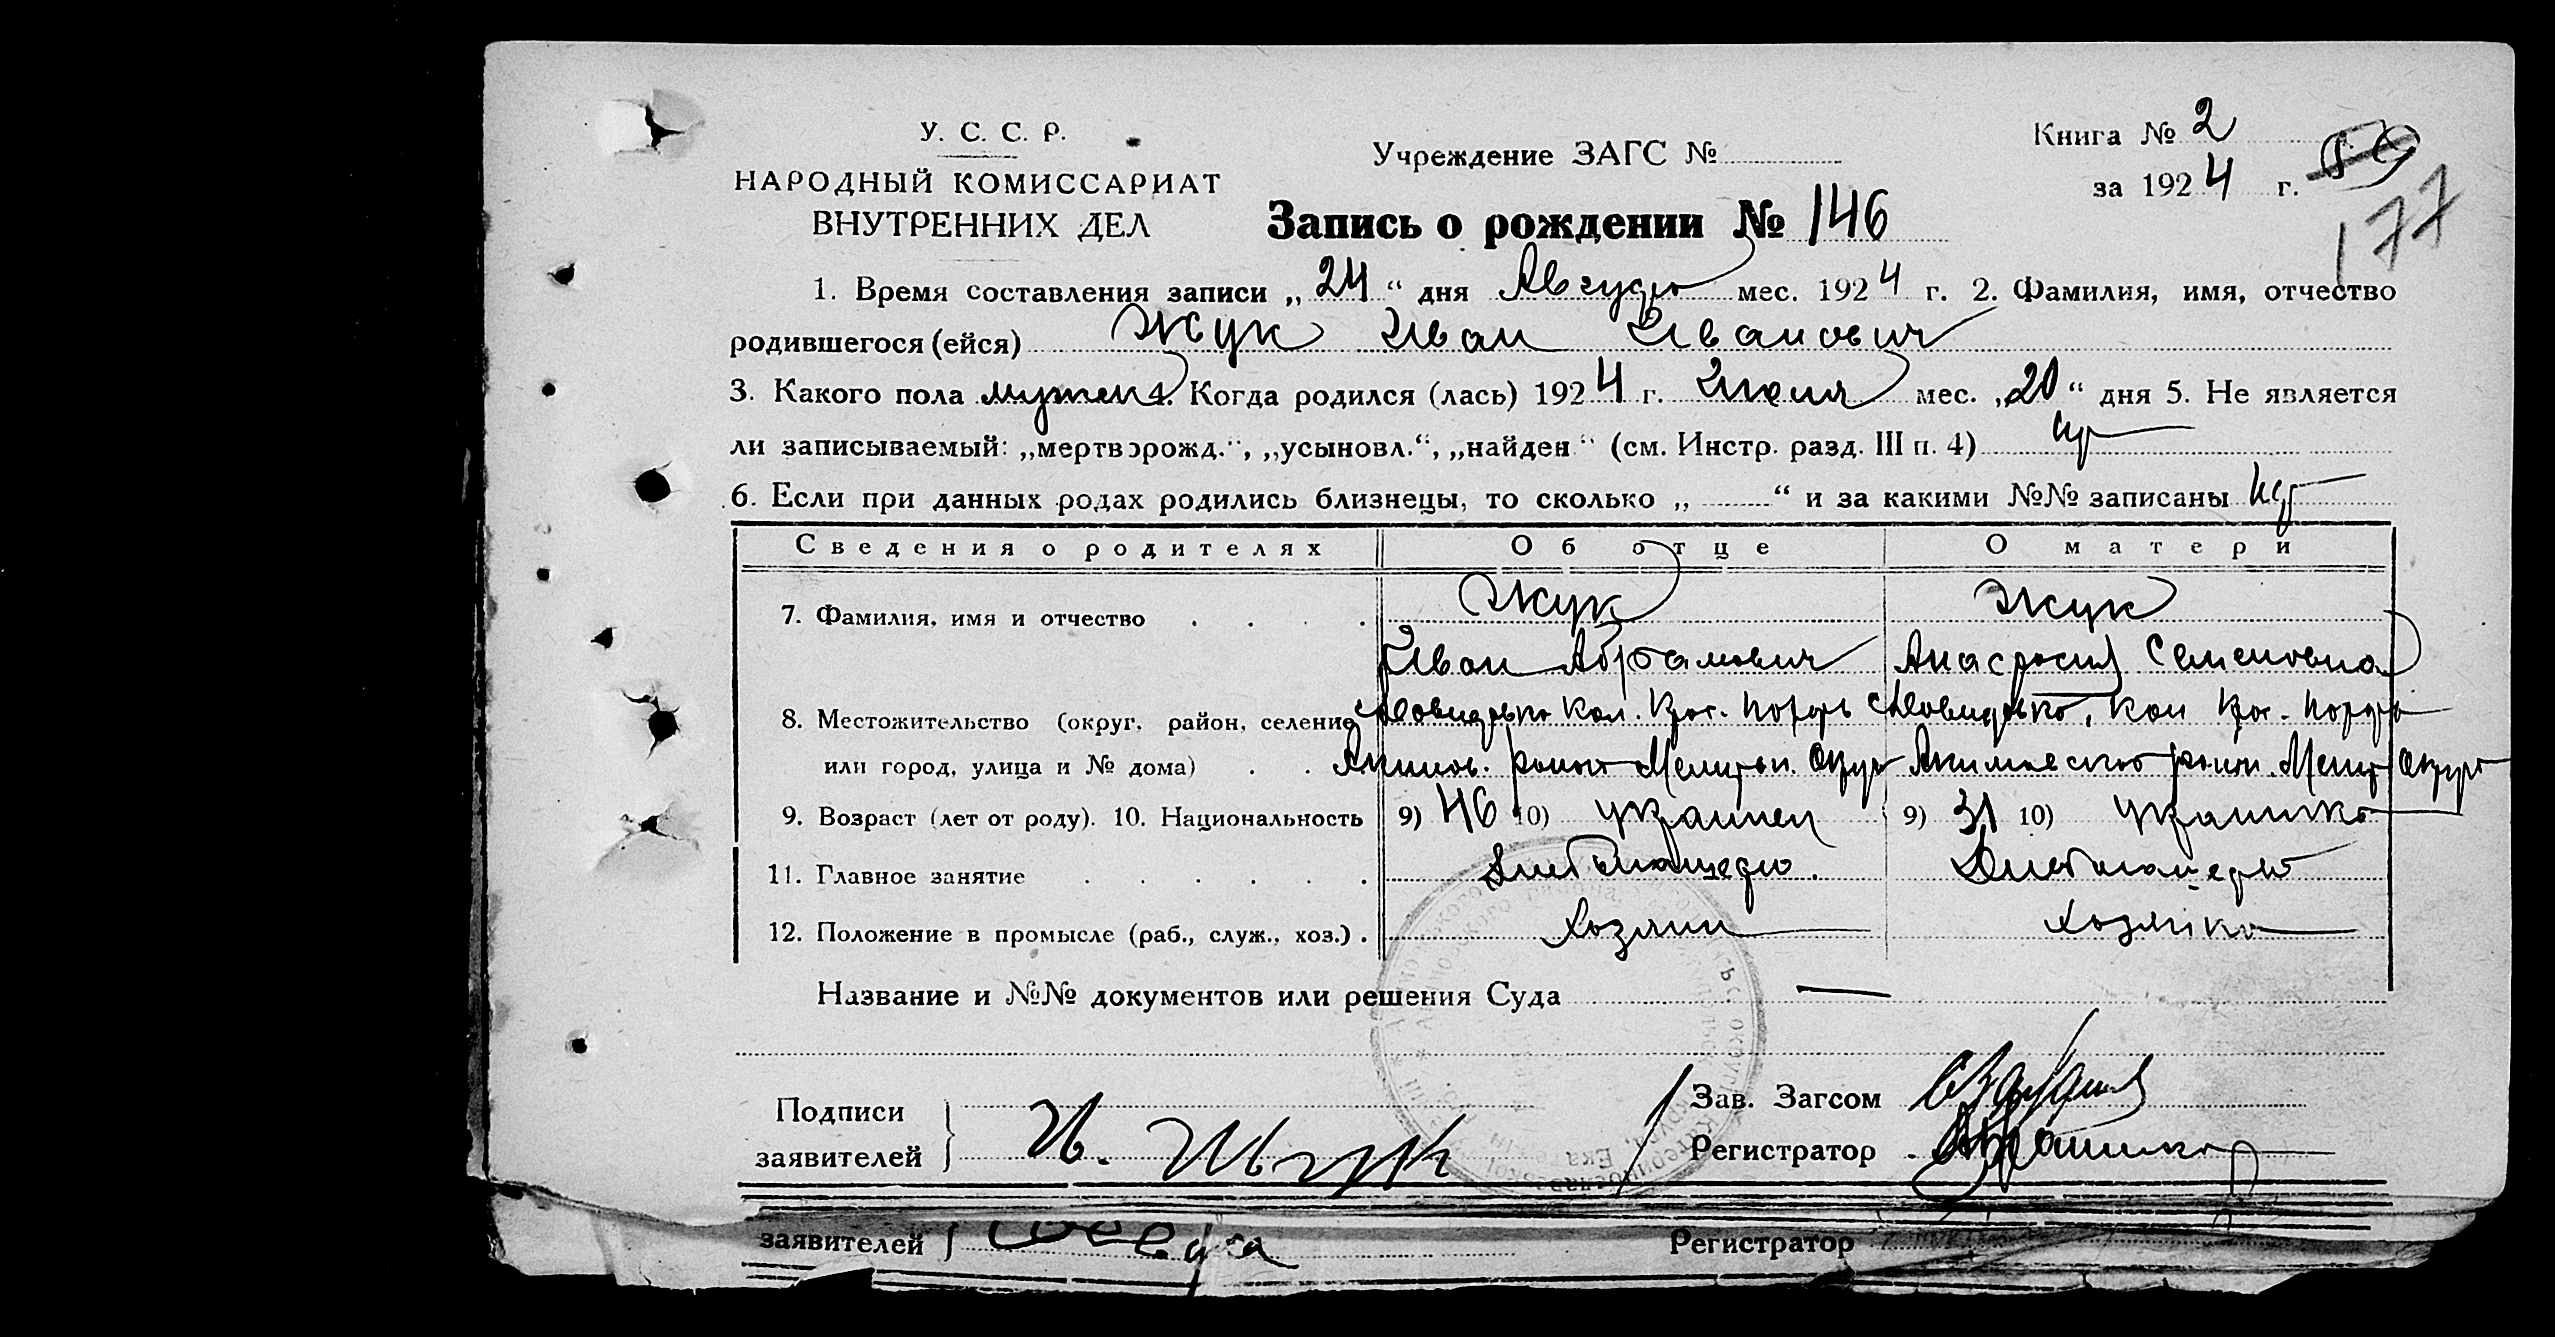 У. С. С. Р.
НАРОДНЫЙ КОМИССАРИАТ
ВНУТРЕННИХ ДЕЛ
Учреждение ЗАГС №
Книга № 2
за 1924 г.
59
177
Запись о рождении № 146
1. Время составления записи „24“ дня Августа мес. 1924 г. 2. Фамилия, имя, отчество
родившегося (ейся) Жук Иван Иванович
3. Какого пола мужск 4. Когда родился (лась) 1924 г. Июля мес. „20“ дня 5. Не является
ли записываемый: „мертворожд.“, „усыновл.“, „найден“ (см. Инстр. разд. III п. 4)
6. Если при данных родах родились близнецы, то сколько „ “ и за какими №№ записаны
Сведения о родителях Об отце О матери
7. Фамилия, имя и отчество Жук Жук
Иван Абрамович Анастасия Семеновна
8. Местожительство (округ, район, селение
или город, улица и № дома) Аким. район Мелитоп. округ Акимовского район. Мелит округ
9. Возраст (лет от роду). 10. Национальность 9) 46 10) украинец 9) 31 10) украинка
11. Главное занятие Хлебопашество. Хлебопашество
12. Положение в промысле (раб., служ., хоз.). Хозяин Хозяйка
Название и №№ документов или решения Суда —
Подписи
заявителей И. Жук
Зав. Загсом
Регистратор
заявителей
Регистратор